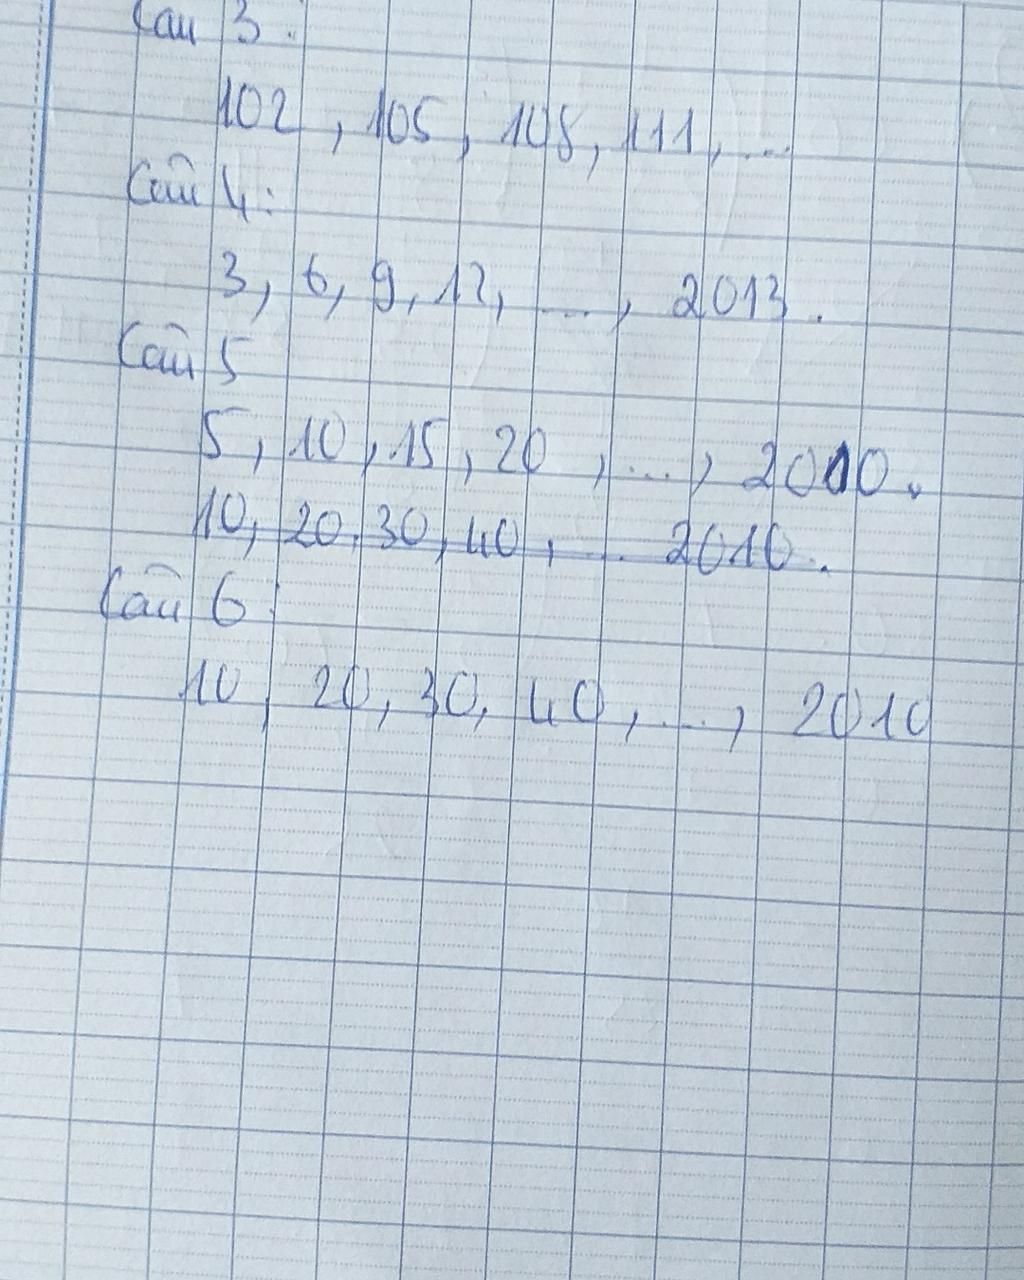 Câu 3:
102, 105, 108, 111, ...
Câu 4:
3, 6, 9, 12, ..., 2013.
Câu 5
5, 10, 15, 20, ..., 2010.
10, 20, 30, 40, ... 2010.
Câu 6:
10, 20, 30, 40, ..., 2010